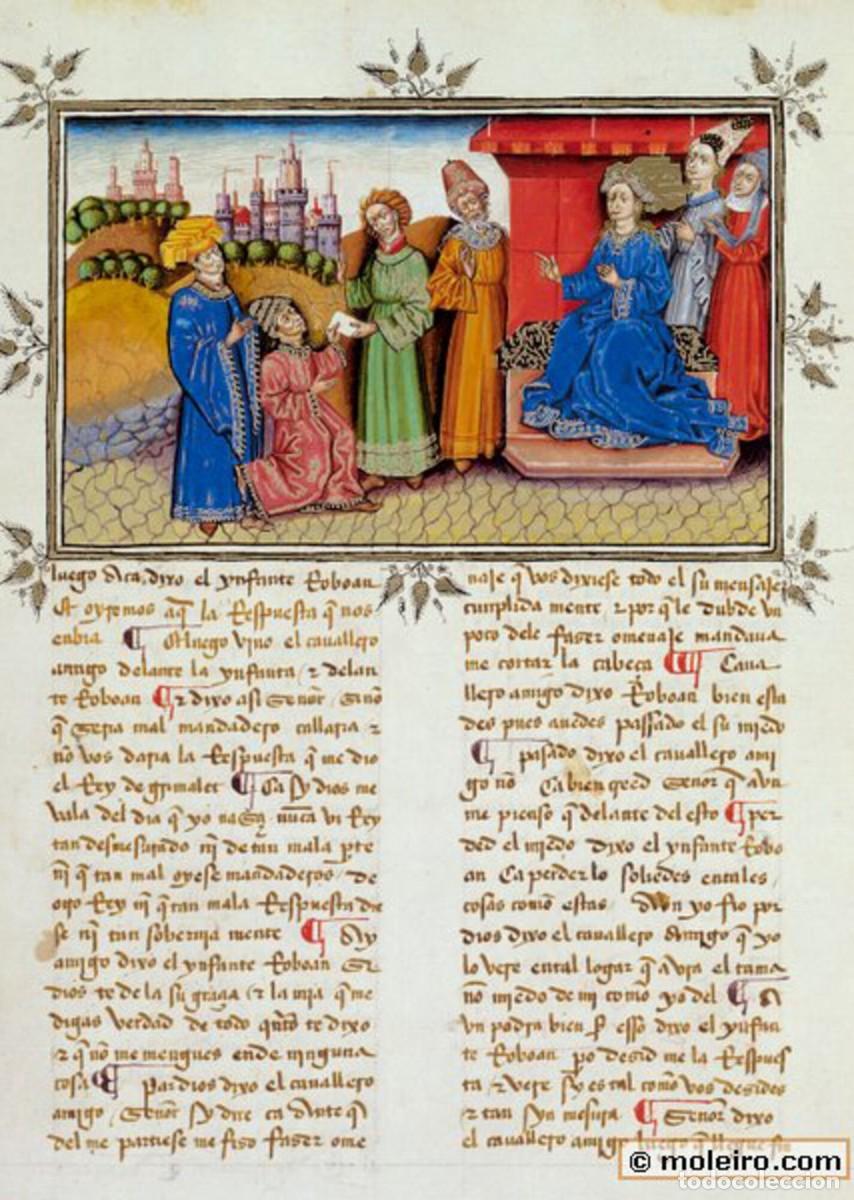 luego Aca dixo el ynfante Roboan
Et oyremos aq̃ la Respuesta que nos
enbia ¶ Et luego vino el cauallero
amigo delante la ynfanta & delan
te Roboan ¶ & dixo asi Senor Sino
q̃ seria mal mandadero callaria &
no vos daria la Respuesta q̃ me dio
el Rey de grimalet ¶ Ca sy dios me
vala del dia q̃ yo nasçi nunca vi Rey
tan desmesurado nĩ de tan mala p̃te
nĩ q̃ tan mal oyese mandaderos de
otro Rey nĩ q̃ tan mala Respuesta die
se nĩ tan soberuia mente ¶ Ay
amigo dixo el ynfante Roboan Si
dios te de la su graçia & la mia que me
digas verdad de todo quãto te dixo
& q̃ no me mengues ende ninguna
cosa ¶ Par dios dixo el cauallero
amigo Señor sy dire ca Ante q̃
del me partiese me fiso faser ome
naje q̃ vos dixiese todo el su mensaje
cunplida mente & por q̃ le dubde vn
poco dele faser omenaje mandaua
me cortar la cabeça ¶ Caua
llero amigo dixo Roboan bien esta
des pues auedes passado el su miedo
¶ pasado dixo el cauallero ami
go nõ Ca bien creed Senor q̃ avn
me pienso q̃ delante del esto ¶ per
ded el miedo dixo el ynfante Robo
an Ca perder lo soliedes en tales
cosas como estas Avn yo fio por
dios dixo el cauallero Amigo q̃ yo
lo vere en tal logar q̃ avra el tama
nõ miedo de mi como yo del ¶ A
vn podra bien ser esso dixo el ynfan
te Roboan po desid me la Respues
ta & vere sy es tal como vos desides
& tan syn mesura ¶ Senor dixo
el cauallero amigo luego q̃ llegue
© moleiro.com
todocoleccion